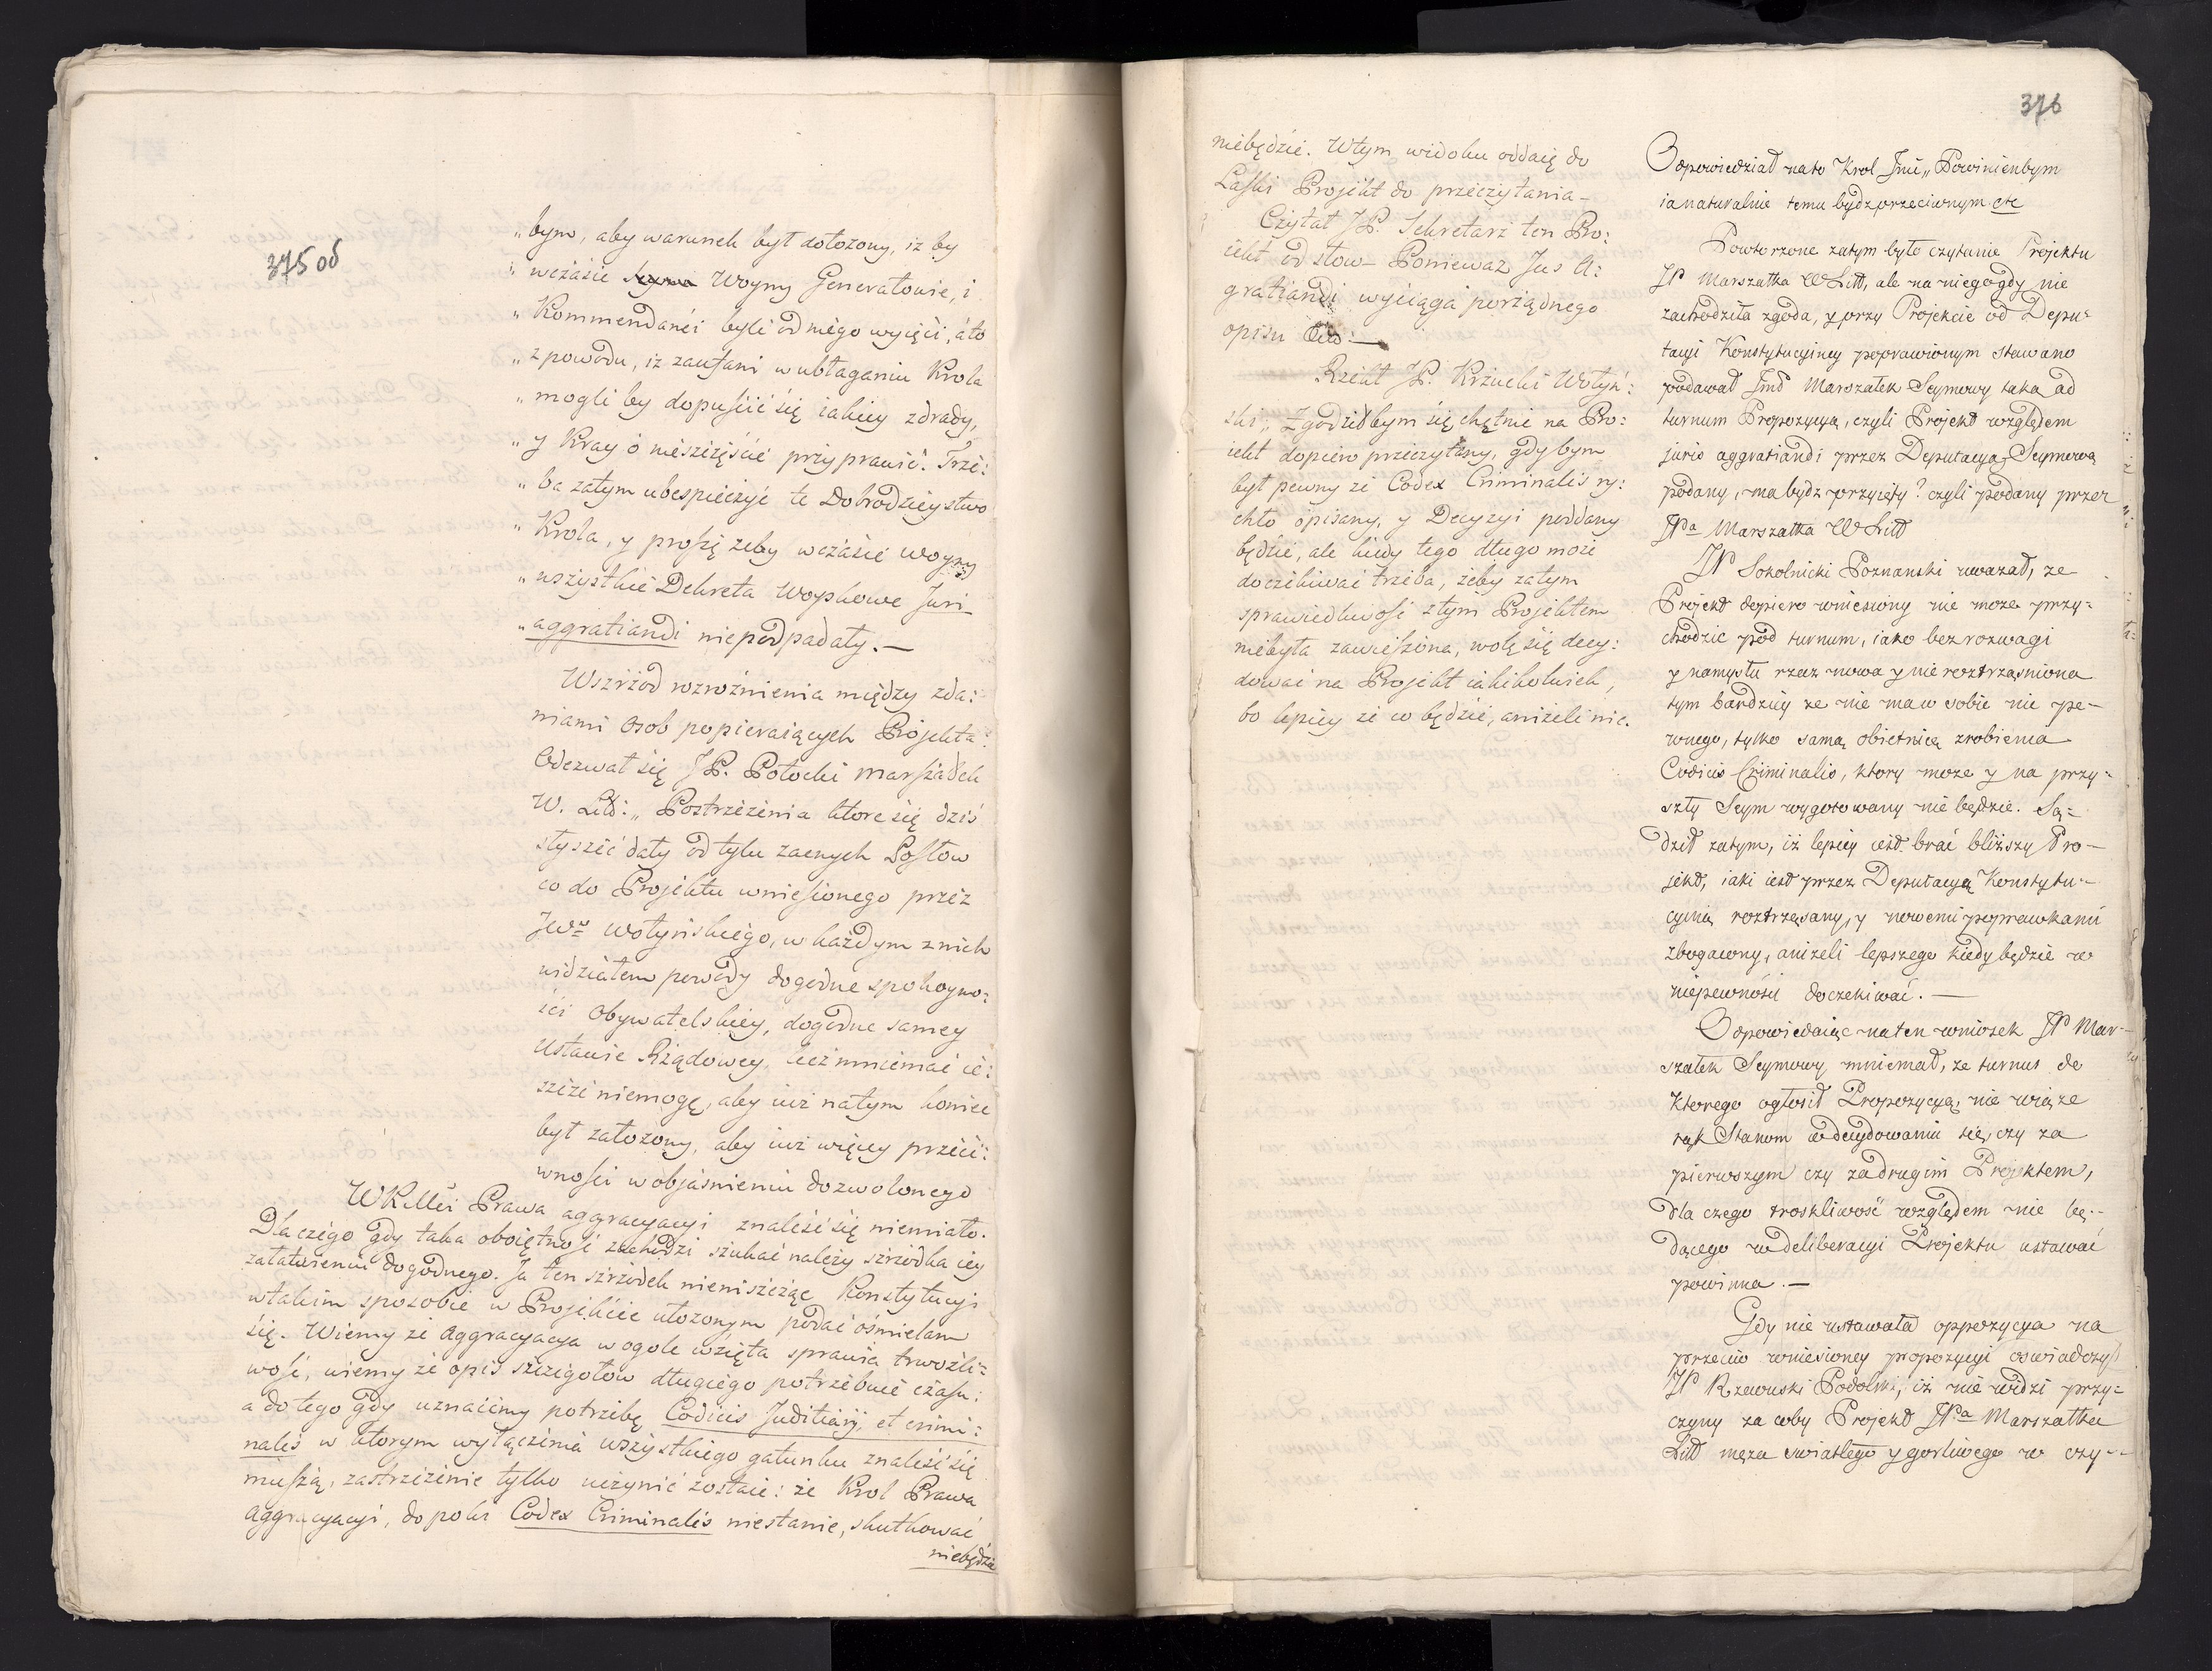 375 об
„bym, aby warunek był dołozony, iz by
„wczasie Woyny Generałowie, i
„Kommendanći byli od niego wyięći, áto
„z powodu, iz zaufani w ubłaganiu Krola
„mogli by dopuśćić się iakiey zdrady,
„y Kray o niesżczęśćie przyprawić. Trze:
„ba zatym ubespieczyć te Dobrodzieystwo
„Krola, y proszę zeby wczásie woyny
„wszystkie Dekreta Woyskowe Juri
„aggratiandi niepodpadały.—
Wszrzod rozroźnienia między zda:
niami osob popieraiących Projekta:
Odezwał się JP. Potocki marszałek
W. Litt: „Postrzeżenia ktore się dziś
słyszeć dały od tylu zacnych Posłow
co do Projektu wniesionego przez
JWo wołyńskiego, w każdym z nich
widziałem powody dogodne spokoyno:
ści Obywatelskiey, dogodne samey
Ustawie Rządowey, lecz mniemać ie:
szcze niemogę, aby iuż natym koniec
był załozony, aby iuż więcey przeci:
wnośći w objaśnieniu dozwolonego
WKMći Prawa aggracyacyi znaleść się niemiało.
Dla czego gdy taka oboiętność zachodzi szukać należy szrzodka iey
załatwieniu dogodnego. Ja ten szrzodek nieniszcząc Konstytucyi
w takim sposobie w Projekćie ułozonym podać ośmielam
się. Wiemy że aggracyacya w ogole wzięta sprawia trwożli:
wość, wiemy że opis szczegołow długiego potrzebuie czasu:
a do tego gdy uznaiemy potrzebę Codicis Juditiarij, et crimi:
nalis w ktorym wyłączenia wszystkiego gatunku znaleść się
muszą, zastrzeżenie tylko uczynić zostaie: że Krol Prawa
aggracyacyi, do poki Codex Criminalis niestanie, skutkować
niebędzie
376
niebędzie. W tym widoku oddaię do
Laski Projekt do przeczytania—
Czytał JP. Sekretarz ten Pro:
iekt od słow— Ponieważ Jus A:
gratiandi wyciąga porządnego
opisu
Rzekł JP. Krzucki Wołyń:
ski: Zgodziłbym się chętnie na Pro:
iekt dopiero przeczytany, gdy bym
był pewny ze Codex Criminalis ry:
chło opisany, y Decyzyi poddany
będzie, ale kiedy tego długo może
doczekiwać trzeba, żeby zatym
sprawiedliwość z tym Projektem
niebyła zawieszona, wolę się decy:
dować na Projekt iakikolwiek,
bo lepiey ze co będzie, aniżeli nic.
Odpowiedział na to Krol Jmć „Powinienbym
ia naturalnie temu bydz przeciwnym etc
Powtorzone zatym było czytanie Projektu
JP Marszałka W Litt, ale na niego gdy nie
zachodziła zgoda, y przy Projekcie od Depu-
tacyi Konstytucyiney poprawionym stawano
podawał Jmć Marszałek Seymowy taka ad
turnum Propozycyą, czyli Projekt względem
juris aggratiandi przez Deputacyą Seymową
podany, ma bydz przyięty? czyli podany przez
JPa Marszałka W Litt
JP Sokolnicki Poznanski uwazał, ze
Projekt dopiero wniesiony nie moze przy-
chodzic pod turnum, iako bez rozwagi
y namysłu rzecz nowa y nie roztrząsniona
tym bardziey ze nie ma w sobie nic pe-
wnego, tylko samą obietnicą zrobienia
Codicis Criminalis, ktory moze y na przy-
szły Seym wygotowany nie będzie. Są-
dził zatym, iż lepiey iest brać bliższy Pro-
jekt, iaki iest przez Deputacyą Konstytu-
cyiną roztrząsany, y nowemi poprawkami
zbogacony, aniżeli lepszego kiedy będzie w
niepewności doczekiwać.—
Odpowiedaiąc na ten wniosek JP Mar-
szałek Seymowy mniemał, ze turnus do
ktorego ogłosił Propozycyą, nie wiąże
rąk Stanom w decydowaniu się, czy za
pierwszym czy za drugim Projektem,
dla czego troskliwość względem nie bę-
dącego w deliberacyi Projektu ustawać
powinna.—
Gdy nie ustawała oppozycya na
przeciw wniesioney propozycyi oswiadczył
JP Rzewuski Podolski, iż nie widzi przy-
czyny za coby Projekt JPa Marszałka
Litt męza swiatłego y gorliwego w czy-